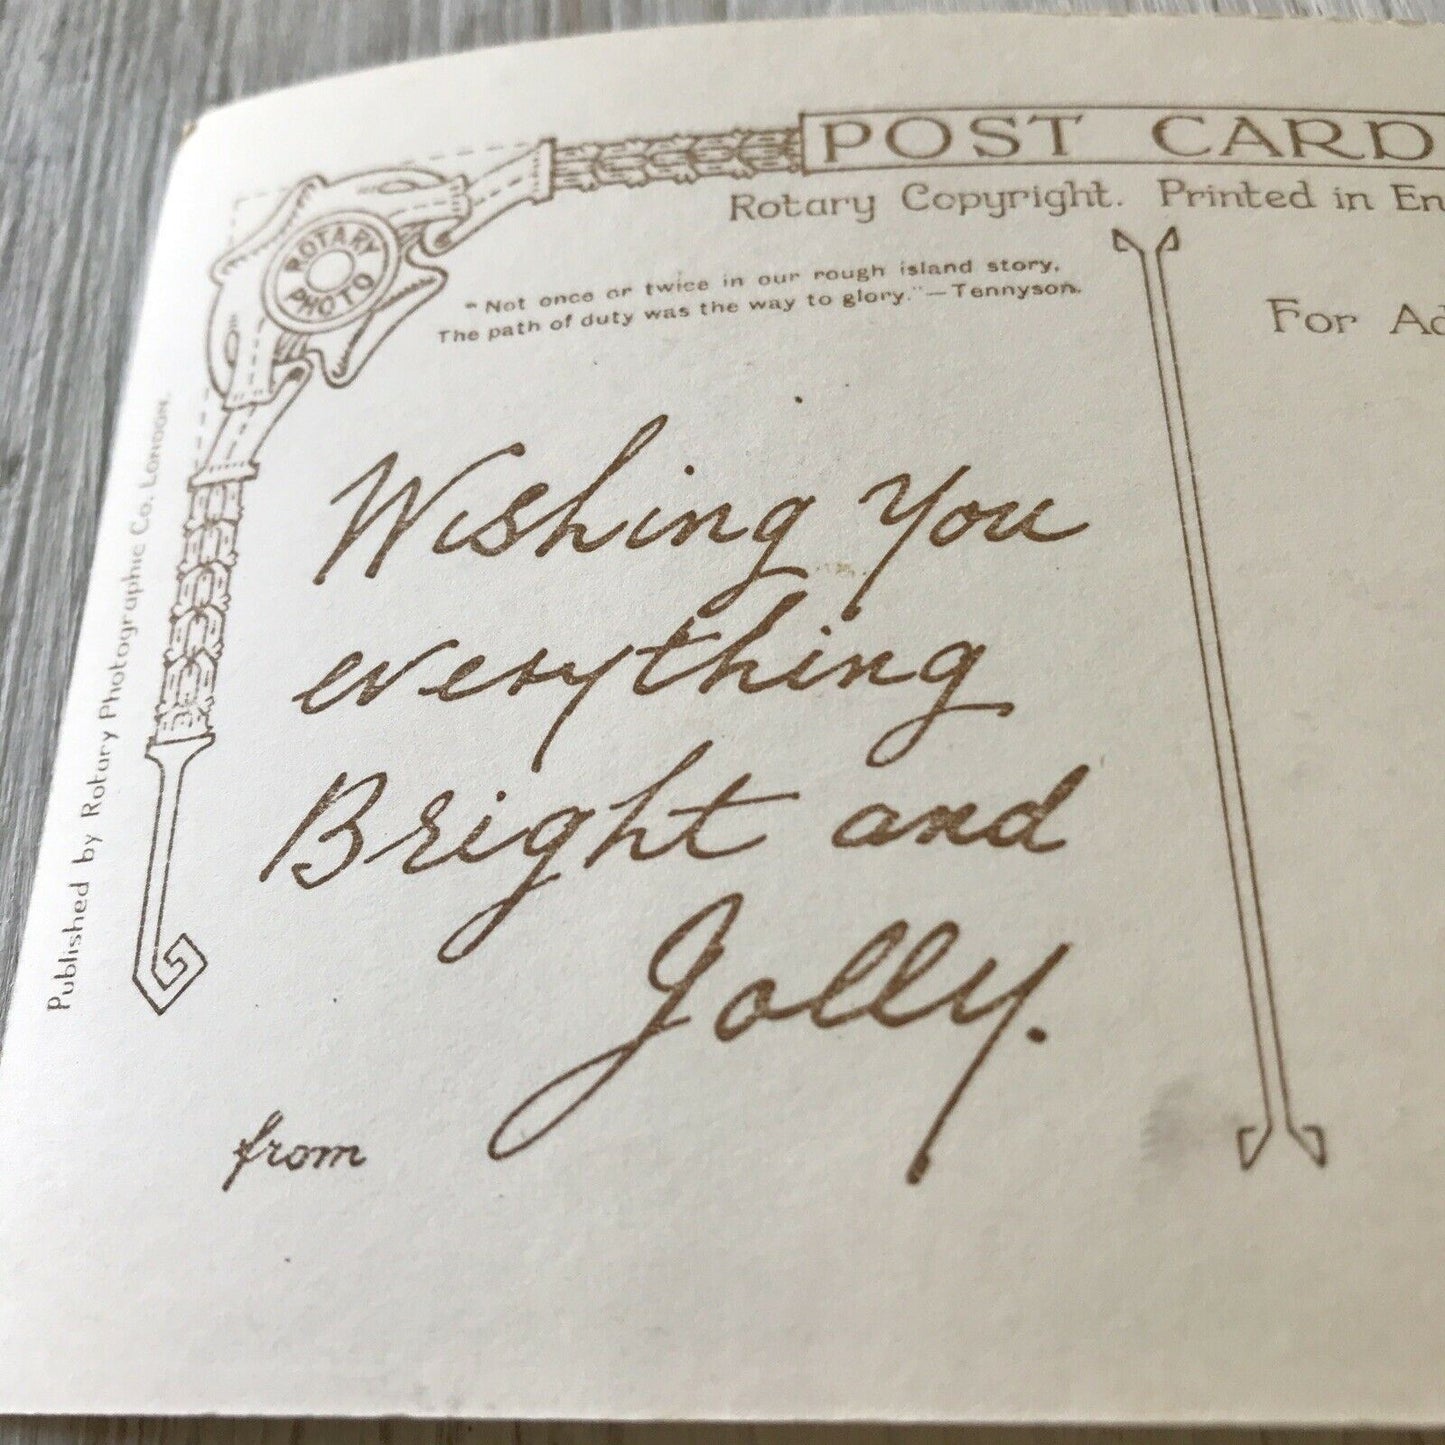 POST CARD
Rotary Copyright. Printed in En
ROTARY
PHOTO
"Not once or twice in our rough island story,
The path of duty was the way to glory."—Tennyson.
For Ad
Published by Rotary Photographic Co. LONDON.
Wishing you
everything
Bright and
Jolly.
from